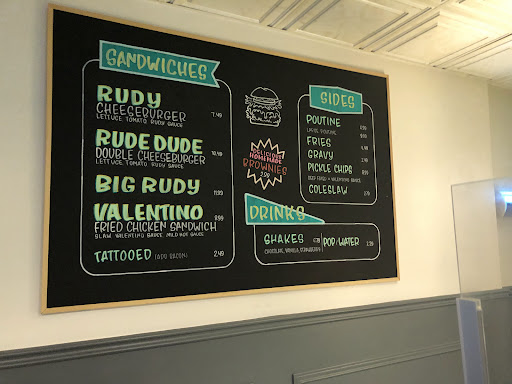 SANDWICHES
RUDY
CHEESEBURGER 7.49
LETTUCE, TOMATO, RUDY SAUCE
RUDE DUDE
DOUBLE CHEESEBURGER 10.49
LETTUCE, TOMATO, RUDY SAUCE
BIG RUDY
VALENTINO
FRIED CHICKEN SANDWICH
SLAW, VALENTINO SAUCE, MILD HOT SAUCE
TATTOOED (ADD BACON) 2.49
DELICIOUS
HOMEMADE
BROWNIES
2.99
SIDES
POUTINE
LARGE POUTINE
FRIES
GRAVY
PICKLE CHIPS
DEEP FRIED + VALENTINO SAUCE
COLESLAW
DRINKS
SHAKES
CHOCOLATE, VANILLA, STRAWBERRY
POP/WATER